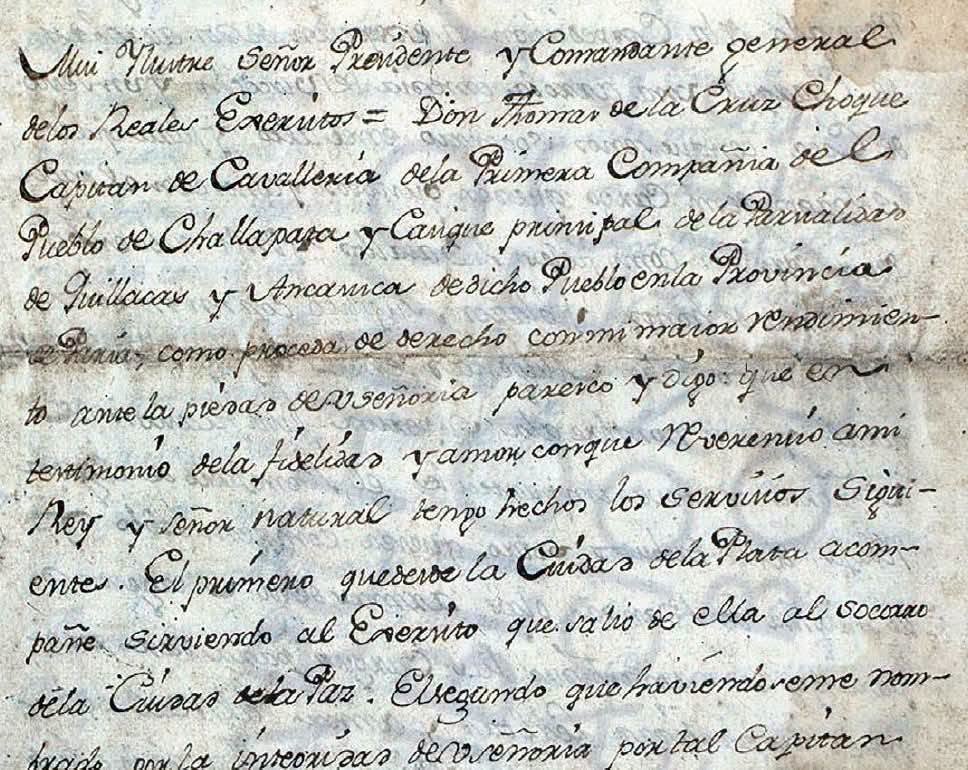 Mui Ylustre Señor Presidente y Comandante general
delos Reales Exercitos = Don Thomas de la Cruz Choque
Capitan de Cavalleria dela Primera Compañia del
Pueblo de Challapata y Casique principal de la Parcialidad
de Quillacas y Ancanica dedicho Pueblo enla Provincia
de Paria, como proceda de derecho con mi maior rendimien-
to ante la piedad de Vseñoria paresco y digo: que en
testimonio dela fidelidad y amor conque reverencio ami
Rey y señor natural tengo hechos los servicios sigui-
entes. El primero quedesde la Ciudad dela Plata acom-
pañe sirviendo al Exercito que salio de ella al socorro
dela Ciudad dela Paz. Elsegundo que haviendoseme nom-
brado por la integridad de Vseñoria por tal Capitan